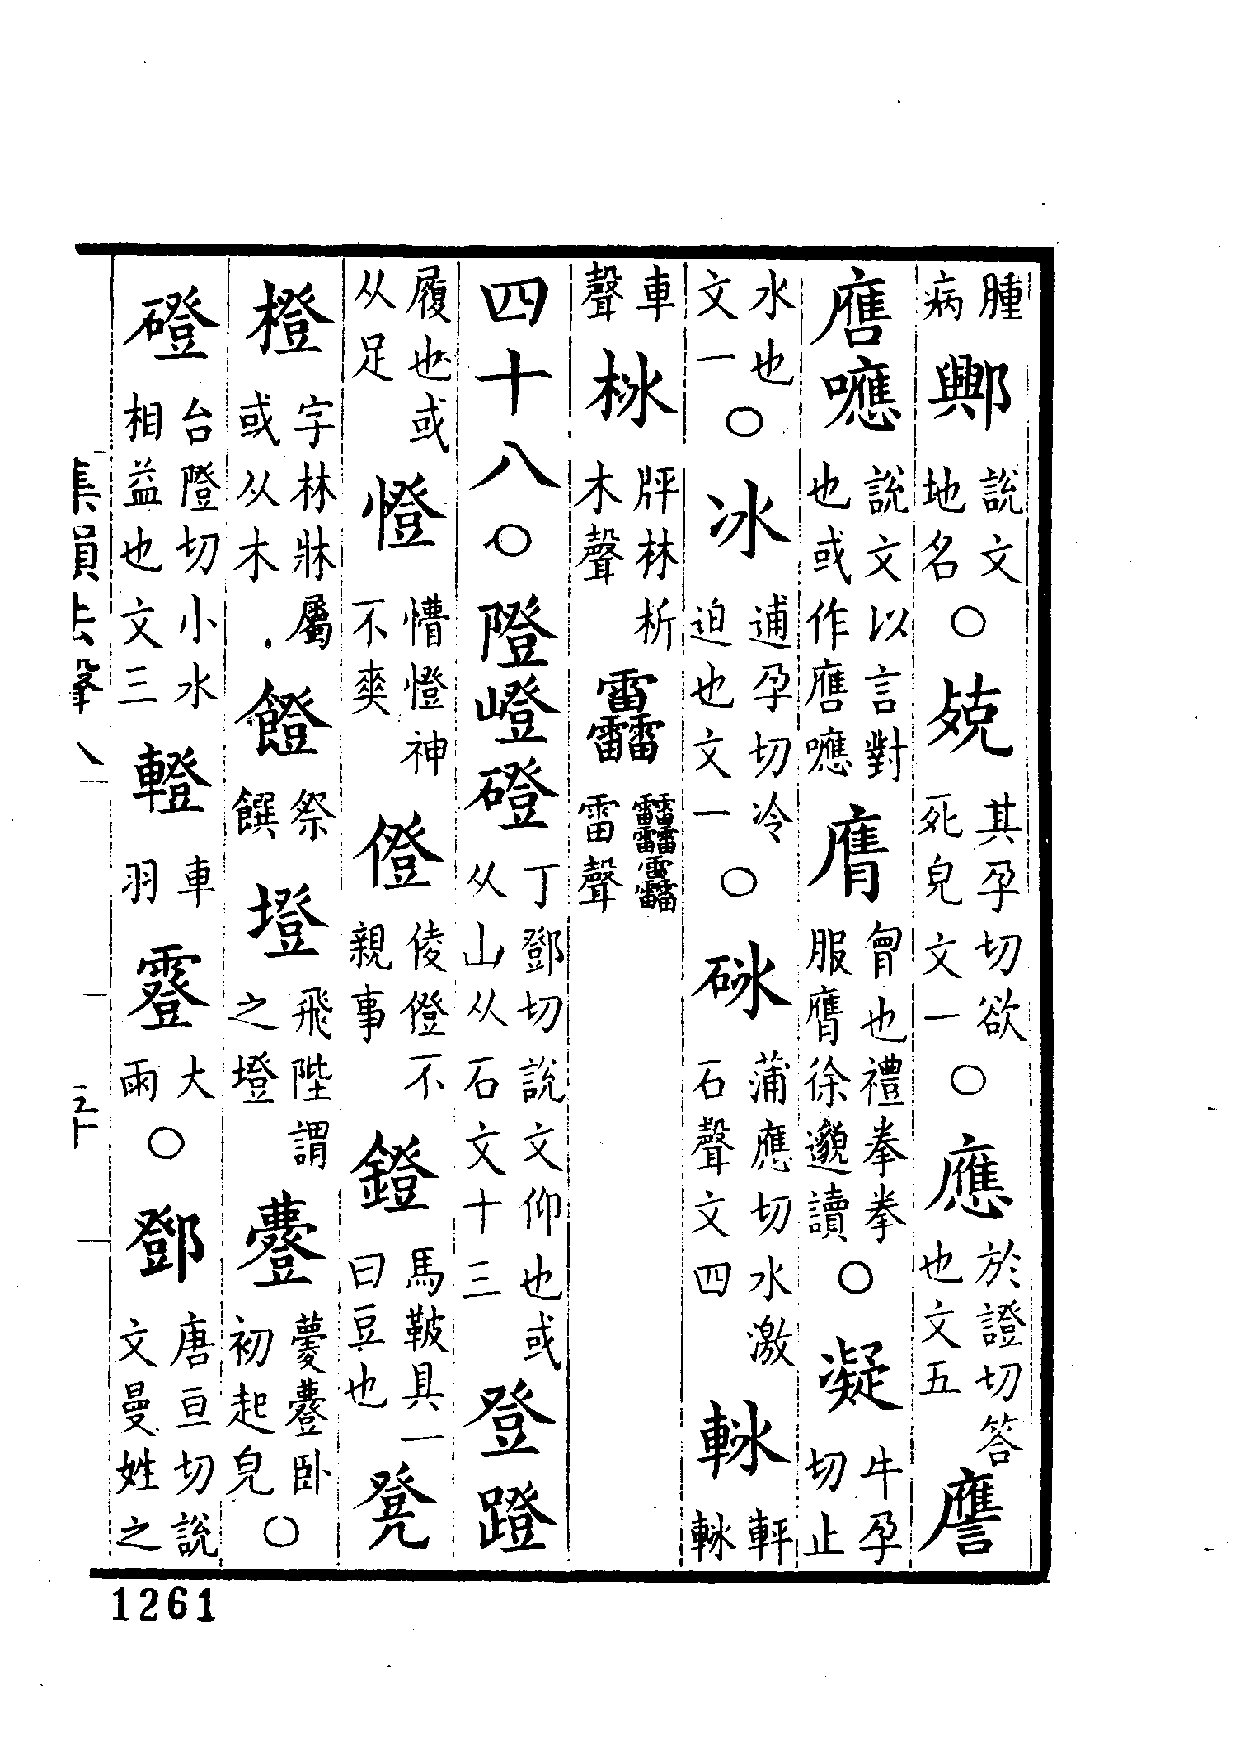 腫病鄋說文地名○殑其孕切欲死皃文一○應於證切答也文五譍
㕃噟說文以言對也或作㕃噟膺㑹也禮拳拳服膺徐邈讀○凝牛孕切止
水也文一○冰逋孕切冷迫也文一○砯蒲應切水激石聲文四軪軒軪
車聲𣐺牉林析木聲靐䨻靐雷聲
四十八○隥嶝磴丁鄧切說文仰也或从山从石文十三登蹬
履也或从足憕懵憕神不爽僜倰僜不親事鐙馬鞁具一曰豆也凳
橙字林牀屬或从木䔲祭饌墱飛陛謂之墱䒭䕯䒭卧初起皃○
磴台隥切小水相益也文三䡴車羽䨬大雨○鄧唐亘切說文曼姓之
集韻去聲八
五十
1261